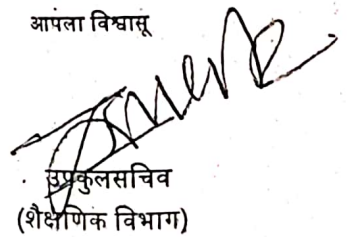 आपला विश्वासू
उपकुलसचिव
(शैक्षणिक विभाग)